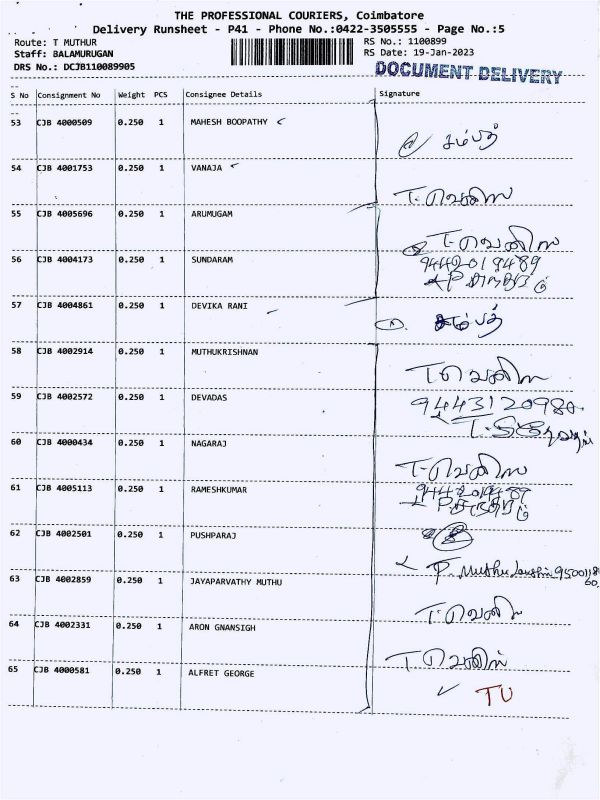 THE PROFESSIONAL COURIERS, Coimbatore
Delivery Runsheet - P41 - Phone No.:0422-3505555 - Page No.:5
Route: T MUTHUR RS No.: 1100899
Staff: BALAMURUGAN RS Date: 19-Jan-2023
DRS No.: DCJB110089905 DOCUMENT DELIVERY
S No Consignment No Weight PCS Consignee Details Signature
53 CJB 4000509 0.250 1 MAHESH BOOPATHY சம்பத்
54 CJB 4001753 0.250 1 VANAJA
55 CJB 4005696 0.250 1 ARUMUGAM
56 CJB 4004173 0.250 1 SUNDARAM 9442019489
57 CJB 4004861 0.250 1 DEVIKA RANI சம்பத்
58 CJB 4002914 0.250 1 MUTHUKRISHNAN
59 CJB 4002572 0.250 1 DEVADAS 9443120980
60 CJB 4000434 0.250 1 NAGARAJ
61 CJB 4005113 0.250 1 RAMESHKUMAR 9442019489
62 CJB 4002501 0.250 1 PUSHPARAJ
63 CJB 4002859 0.250 1 JAYAPARVATHY MUTHU
64 CJB 4002331 0.250 1 ARON GNANSIGH
65 CJB 4000581 0.250 1 ALFRET GEORGE TU